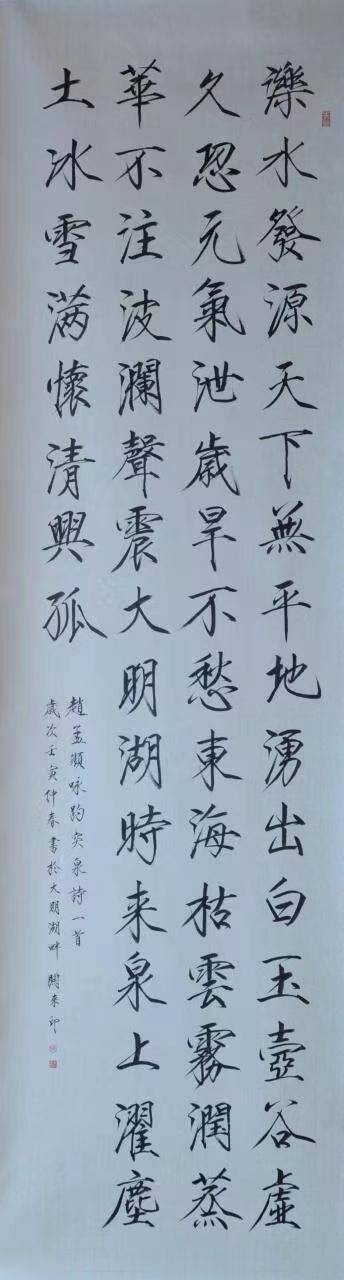 濼水發源天下無平地湧出白玉壺谷虛
久恐元氣泄歲旱不愁東海枯雲霧潤蒸
華不注波瀾聲震大明湖時来泉上濯塵
土冰雪滿懷清興孤
趙孟頫咏趵突泉詩一首
歲次壬寅仲春書於大明湖畔 来印